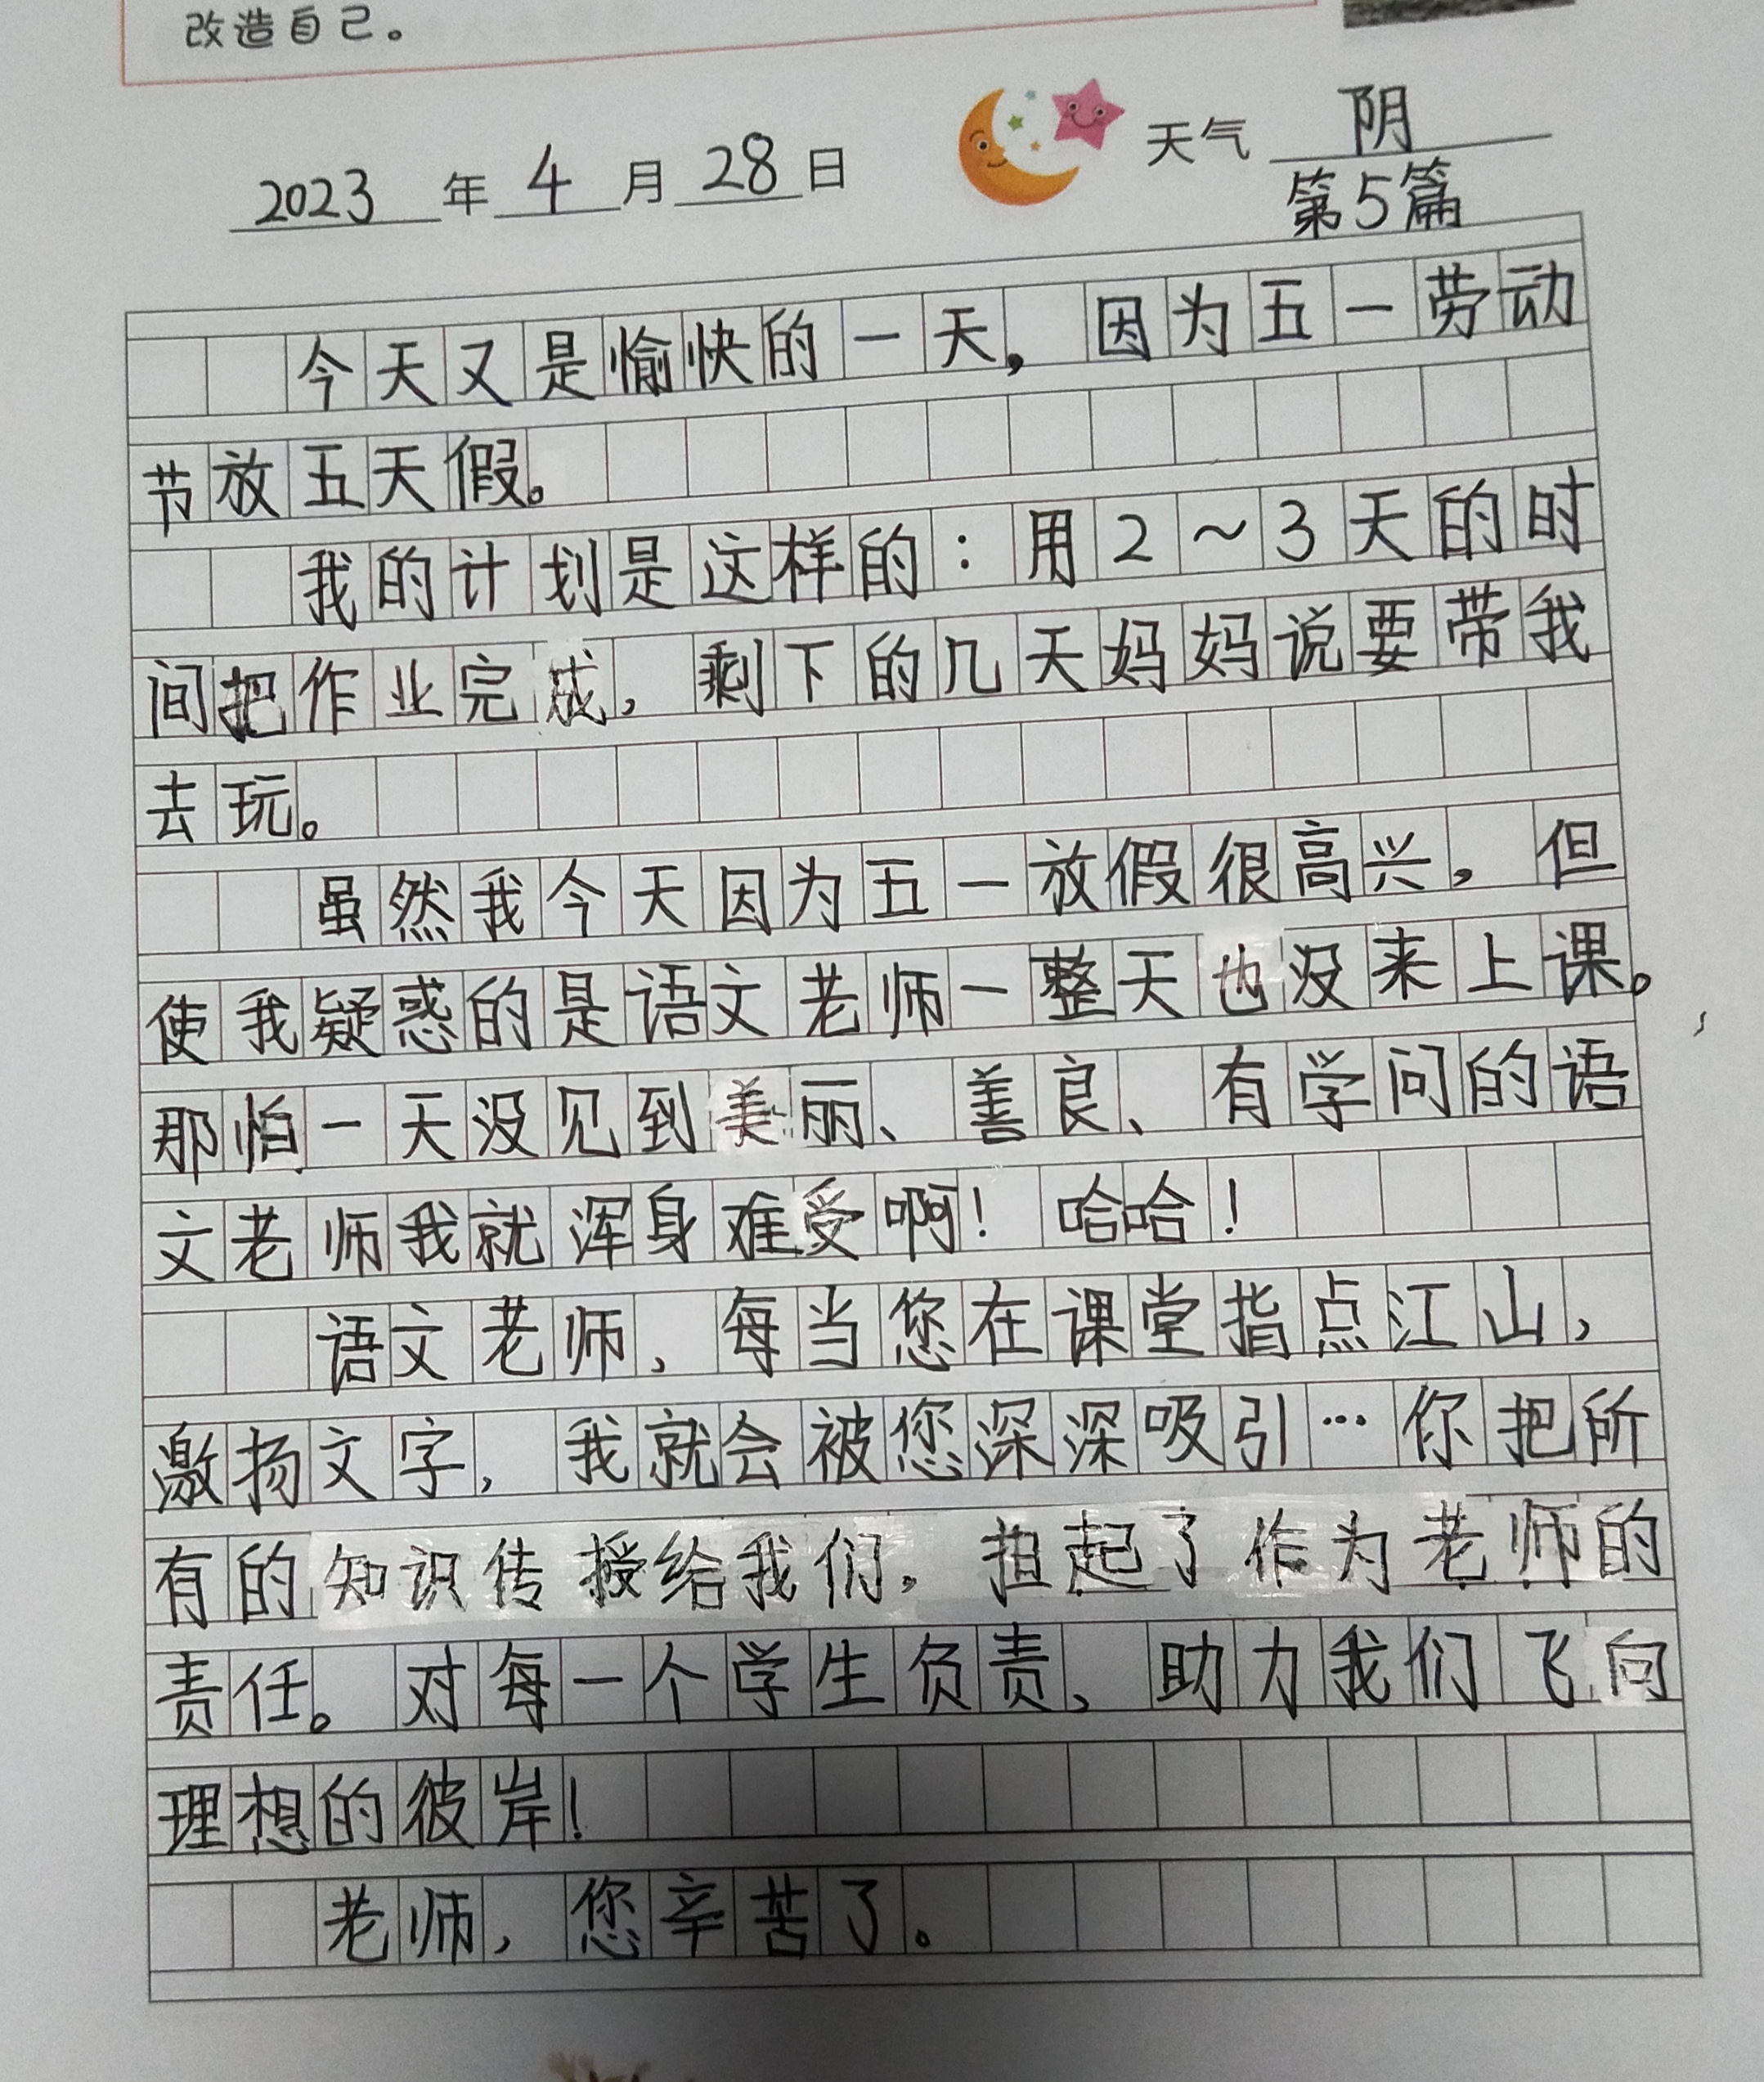 改造自己。
2023年4月28日 天气 阴
第5篇
今天又是愉快的一天,因为五一劳动
节放五天假。
我的计划是这样的:用2~3天的时
间把作业完成,剩下的几天妈妈说要带我
去玩。
虽然我今天因为五一放假很高兴,但
使我疑惑的是语文老师一整天也没来上课。
那怕一天没见到美丽、善良、有学问的语
文老师我就浑身难受啊!哈哈!
语文老师,每当您在课堂指点江山,
激扬文字,我就会被您深深吸引…你把所
有的知识传授给我们,担起了作为老师的
责任。对每一个学生负责、助力我们飞向
理想的彼岸!
老师,您辛苦了。